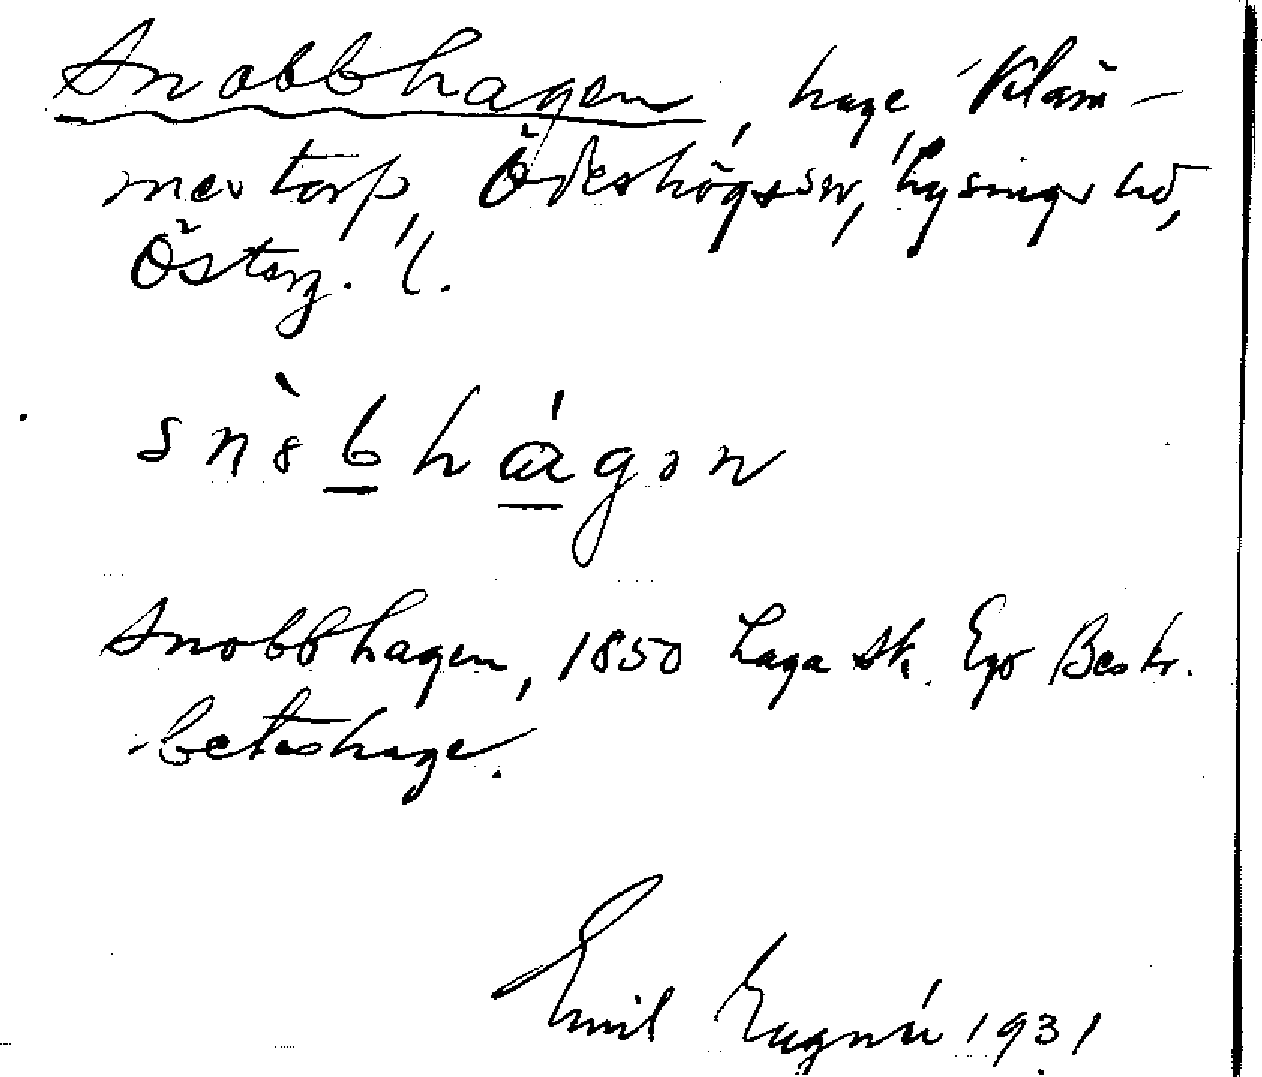 Snobbhagen, hage, Kläm-
merstorp, Ödeshögs sn, Lysings hd,
Österg. l.
snòbhágən
Snobbhagen, 1850 Laga sk. Ego Beskr.
beteshage.
Emil 1931